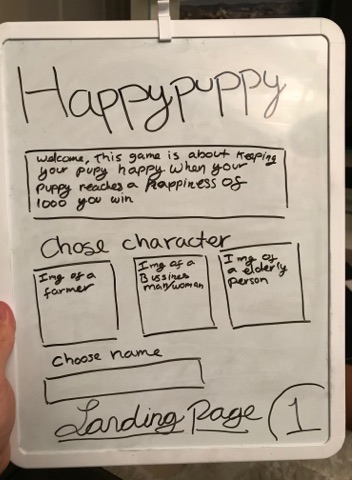 Happypuppy
Welcome, This game is about Keeping
your pupy happy when your
puppy reaches a happiness of
1000 you win
Chose character
Img of a
farmer
Img of a
Bussines
man/woman
Img of
a elderly
person
Choose name
Landing Page 1